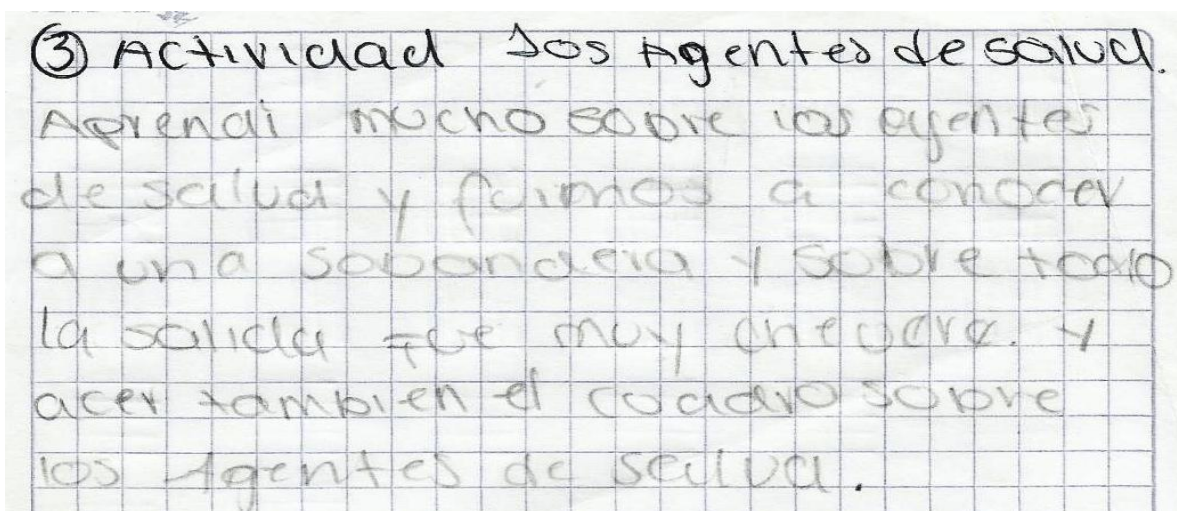 ③ Actividad los Agentes de salud.
Aprendi mucho sobre los agentes
de salud y fuimos a conocer
a una sobandera y sobre todo
la salida fue muy chevere. y
acer tambien el cuadro sobre
los Agentes de salud.